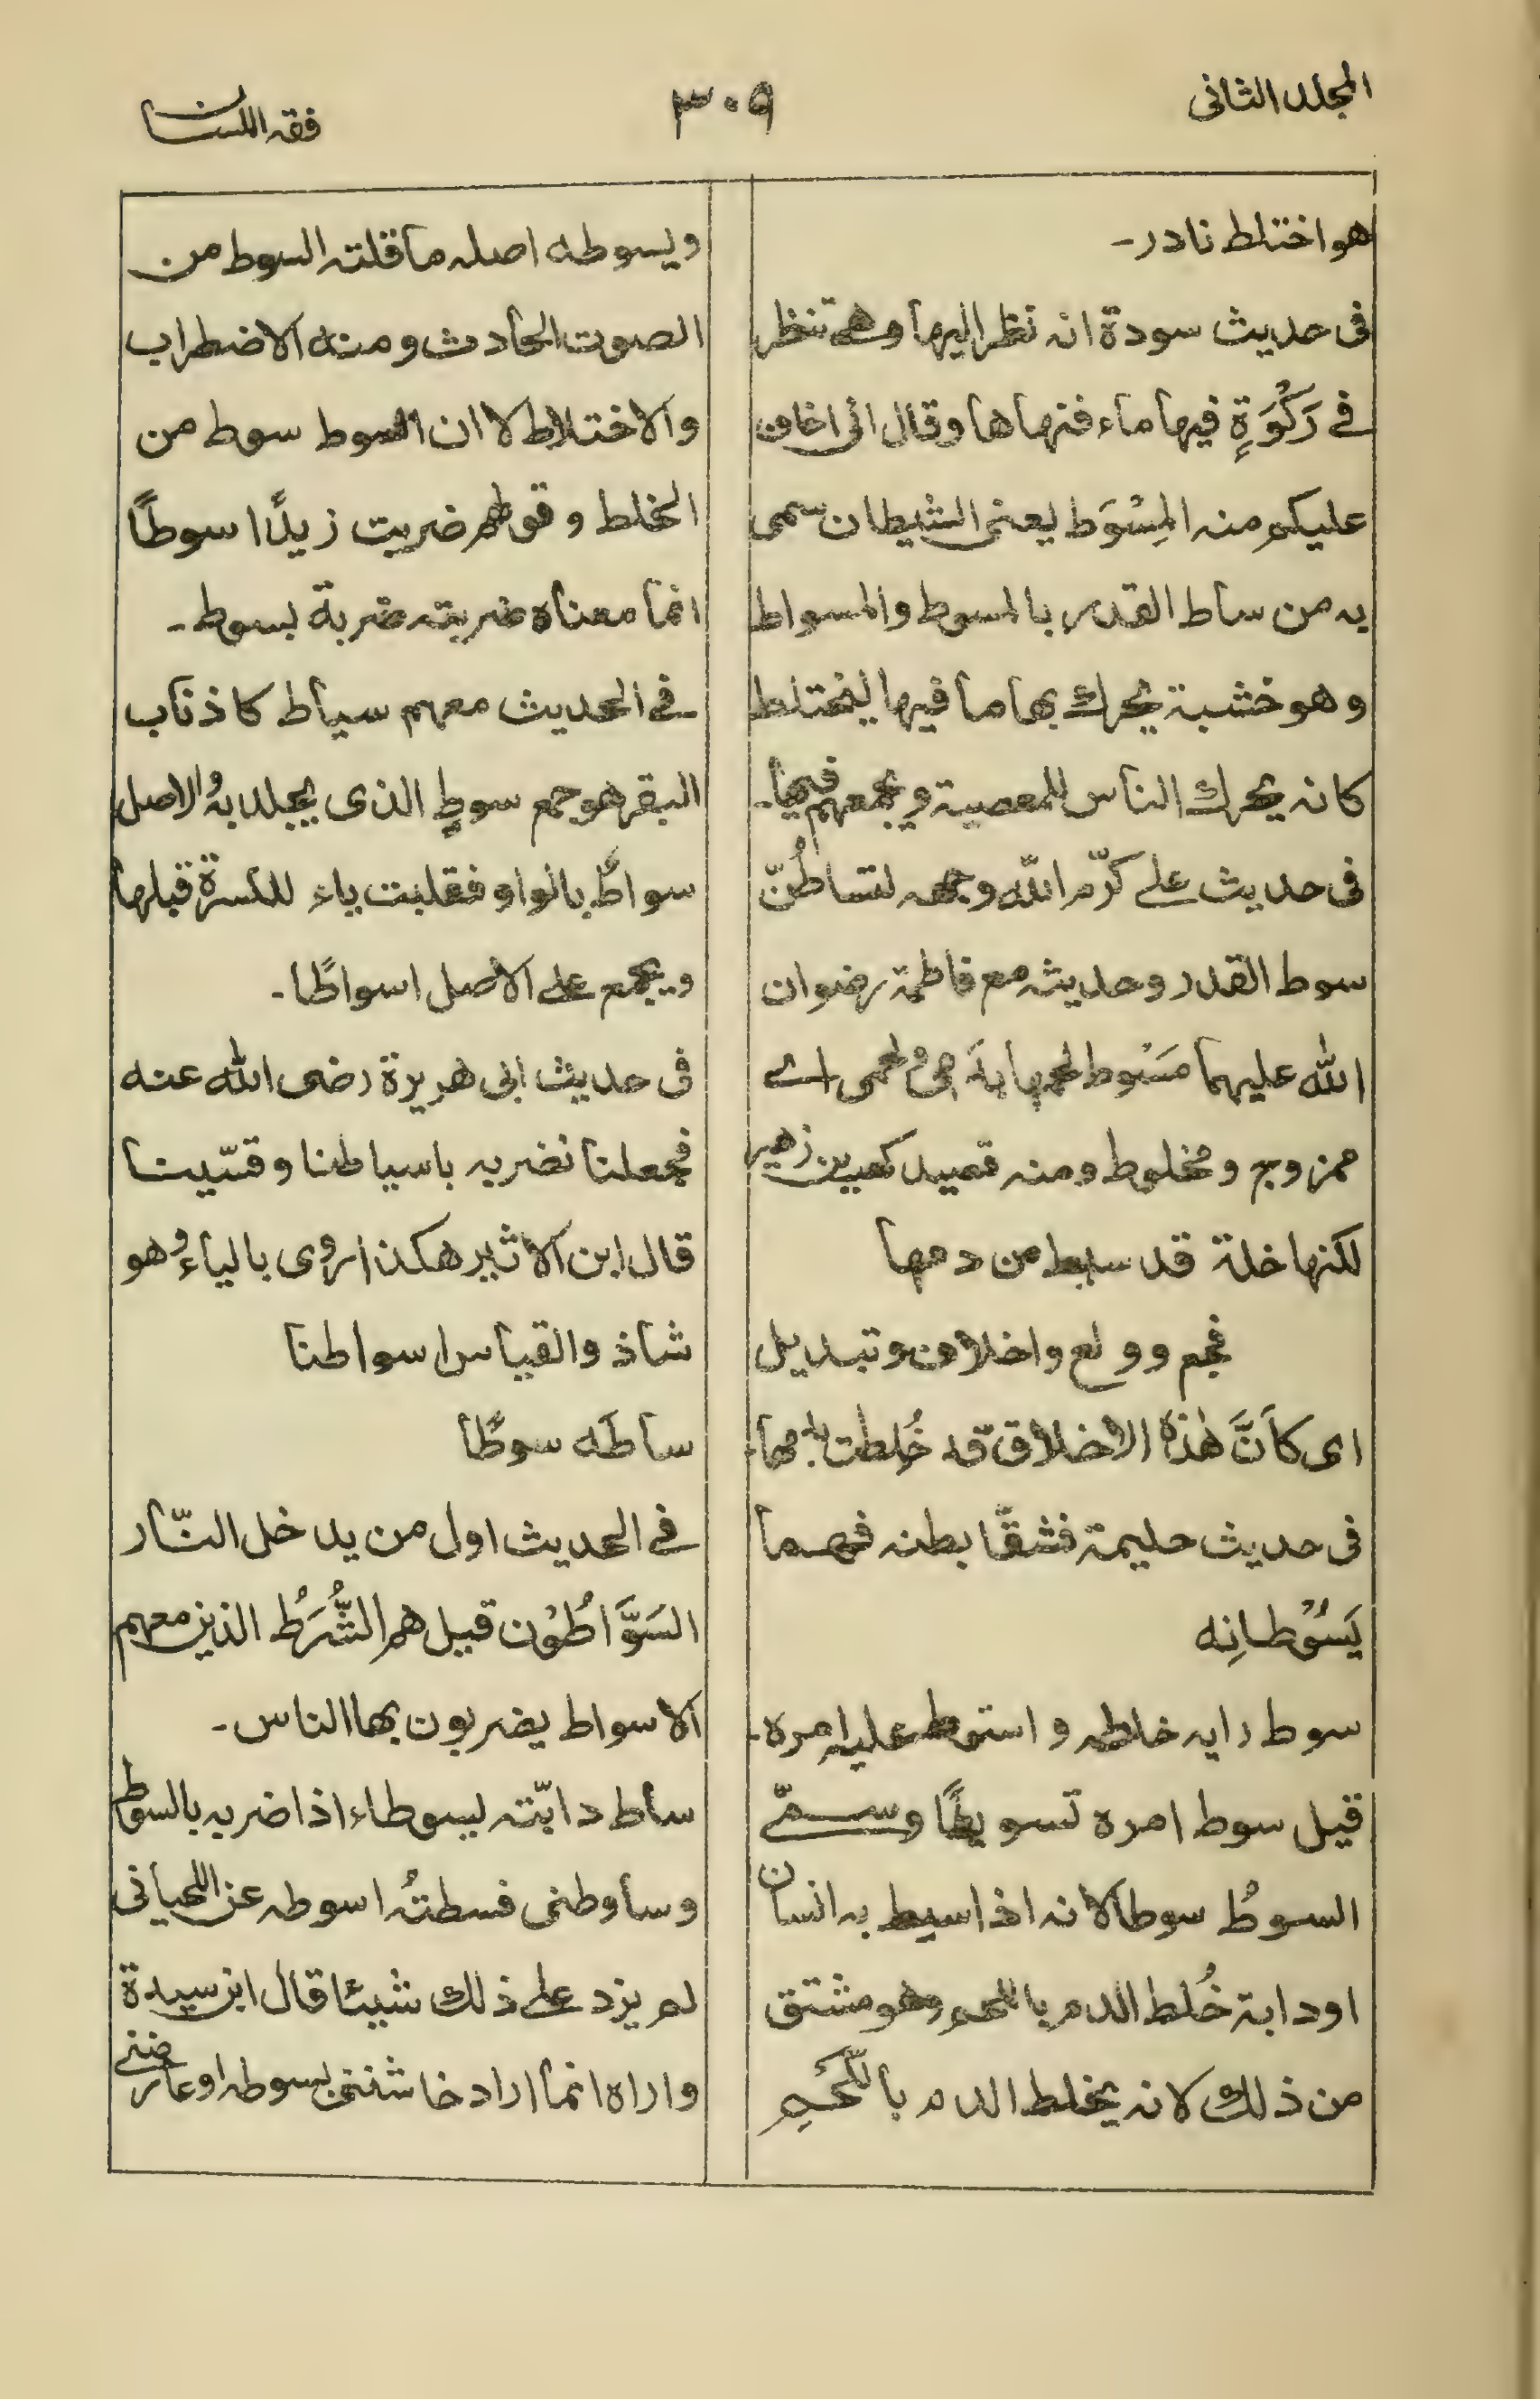 المجلد الثانى
٣٠٩
فقه اللسان
هو اختلط نادر۔
فى حديث سودة انه نظر اليها وهى تنظر
فے رَكْوَةٍ فيها ماء فنهاها وقال انى اخاف
عليكم منه المِسْوَط يعنى الشيطان سمى
به من ساط القدر بالمسوط والمسواط
وهو خشبة يحرك بها ما فيها ليختلط
كانه يحرك الناس للمعصية ويجمعهم فيها۔
فى حديث على كرّم اللّه وجهه لتساطُنّ
سوط القدر وحديثه مع فاطمة رضوان
اللّه عليهما مَسُوط لحمها بدمى ولحمى اے
ممزوج و مخلوط ومنه قصيد كعب بن زهير
لكنها خلة قد سيط من دمها
فجع وولع واخلاف وتبديل
اى كاَنَّ هٰذه الاخلاق قد خُلطت بدمها
فى حديث حليمة فشقّا بطنه فهما
يَسُوْطانِه
سوط رايه خلطه و استوط عليه امره۔
قيل سوط امره تسويطًا وسمّے
السوطُ سوطا لانه اذا سيط به انسان
او دابة خُلط الدم باللحم وهو مشتق
من ذلك لانه يخلط الدم باللَّحْمِ
ويسوطه اصله ما قلته السوط من
الصوت الحادث ومنه الاضطراب
والاختلاط لا ان السوط سوط من
الخلط و قولهم ضربت زيدًا سوطًا
انما معناه ضربته ضربة بسوط۔
فے الحديث معهم سياط كاذناب
البقر هو جمع سوطٍ الذى يجلد به والاصل
سواطٌ بالواو فقلبت ياء للكسرة قبلها
ويجمع على الاصل اسواطًا۔
فى حديث ابى هريرة رضى اللّه عنه
فجعلنا نضربه باسياطنا وقسّينا
قال ابن الاثير هكذا روى بالياء وهو
شاذ والقياس اسواطنا
ساطَه سوطًا
فے الحديث اول من يدخل النّار
السَوَّاطُوْن قيل هم الشُّرَطُ الذين معهم
الاسواط يضربون بها الناس۔
ساط دابّته يسوطاء اذا ضربه بالسوط
وساوطنى فسطتُه اسوطه عن اللحيانى
لم يزد على ذلك شيئا قال ابن سيدة
واراه انما اراد خاشننى بسوطه او عارضنے